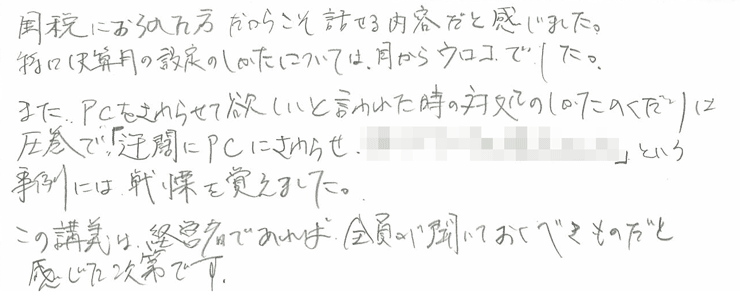 国税におられた方だからこそ話せる内容だと感じました。
特に決算月の設定のしかたについては、目からウロコでした。
また、PCをさわらせて欲しいと言われた時の対処のしかたのくだりは
圧巻で、「迂闊にPCにさわらせ、」という
事例には戦慄を覚えました。
この講義は、経営者であれば、全員が聞いておくべきものだと
感じた次第です。